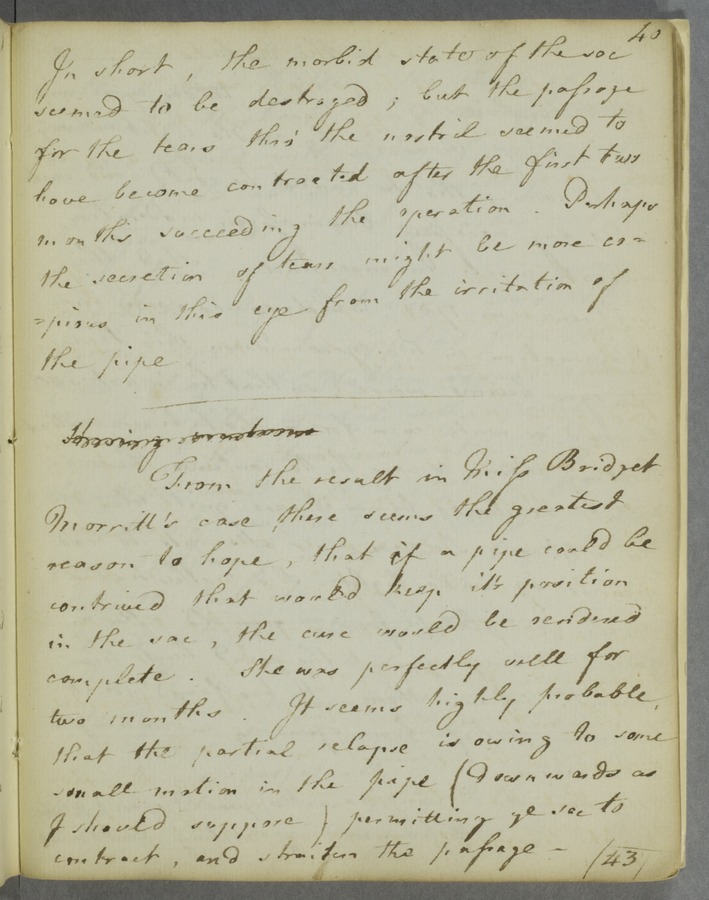 40
In short, the morbid state of the sac
seemed to be destroyed; but the passage
for the tears thro' the nostril seemed to
have become contracted after the first two
months succeeding the operation. Perhaps
the secretion of tears might be more co=
=pious in this eye from the irritation of
the pipe
Having
From the result in Miss Bridget
Morrill's case there seems the greatest
reason to hope, that if a pipe could be
contrived that would keep it's position
in the sac, the cure would be rendered
complete. She was perfectly well for
two months. It seems highly probable,
that the partial relapse is owing to some
small motion in the pipe (Downwards as
I should suppose) permitting ye sac to
contract, and straiten the passage -
(43)